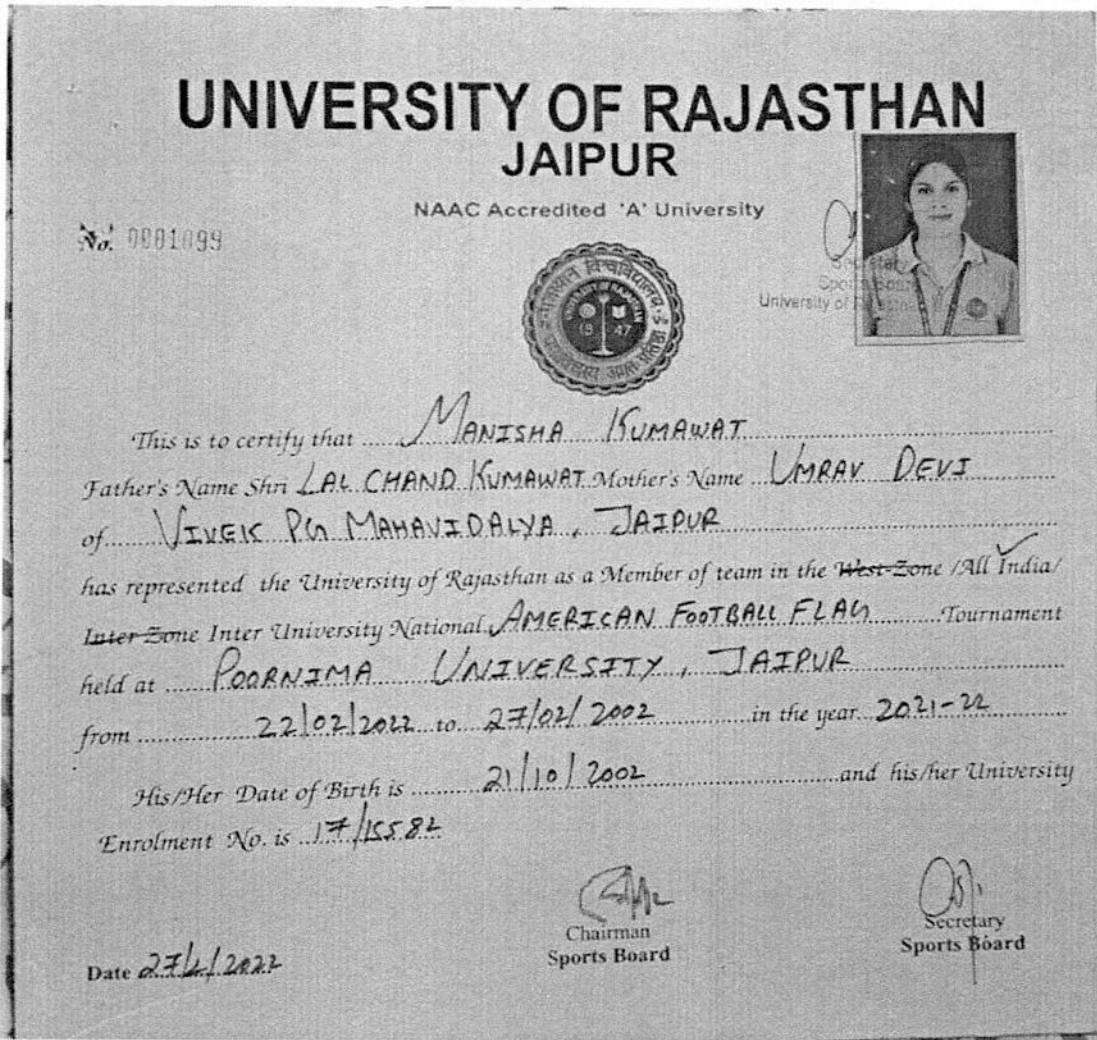 UNIVERSITY OF RAJASTHAN
JAIPUR
NAAC Accredited 'A' University
No. 0001099
राजस्थान विश्वविद्यालय
1947
Secretary
Sports Board
University of Rajasthan
This is to certify that MANISHA KUMAWAT
Father's Name Shri LAL CHAND KUMAWAT Mother's Name UMRAV DEVI
of VIVEK PG MAHAVIDALYA, JAIPUR
has represented the University of Rajasthan as a Member of team in the West-Zone /All India/
Inter Zone Inter University National AMERICAN FOOTBALL FLAG Tournament
held at POORNIMA UNIVERSITY, JAIPUR
from 22/02/2022 to 27/02/2002 in the year 2021-22
His/Her Date of Birth is 21/10/2002 and his/her University
Enrolment No. is 17/15582
Chairman
Sports Board
Secretary
Sports Board
Date 27/2/2022